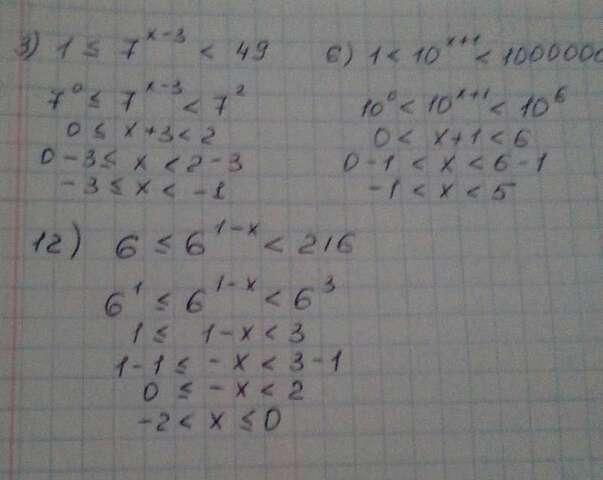 3) 1 ≤ 7^(x-3) < 49
6) 1 < 10^(x+1) < 1000000
7^0 ≤ 7^(x-3) < 7^2
10^0 < 10^(x+1) < 10^6
0 ≤ x+3 < 2
0 < x+1 < 6
0-3 ≤ x < 2-3
0-1 < x < 6-1
-3 ≤ x < -1
-1 < x < 5
12) 6 ≤ 6^(1-x) < 216
6^1 ≤ 6^(1-x) < 6^3
1 ≤ 1-x < 3
1-1 ≤ -x < 3-1
0 ≤ -x < 2
-2 < x ≤ 0